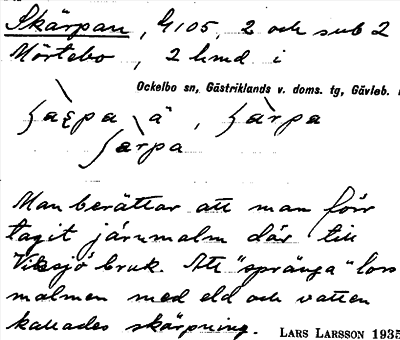 Skärpan, G105, 2 och sub 2
Mörtebo, 2 hmd i
Ockelbo sn, Gästriklands v. doms. tg, Gävleb.
ʃàrpa ä, ʃàrpa
ʃàrpa
Man berättar att man förr
tagit järnmalm där till
Viksjö bruk. Att "spränga" lös
malmen med eld och vatten
kallades skärpning. LARS LARSSON 1935